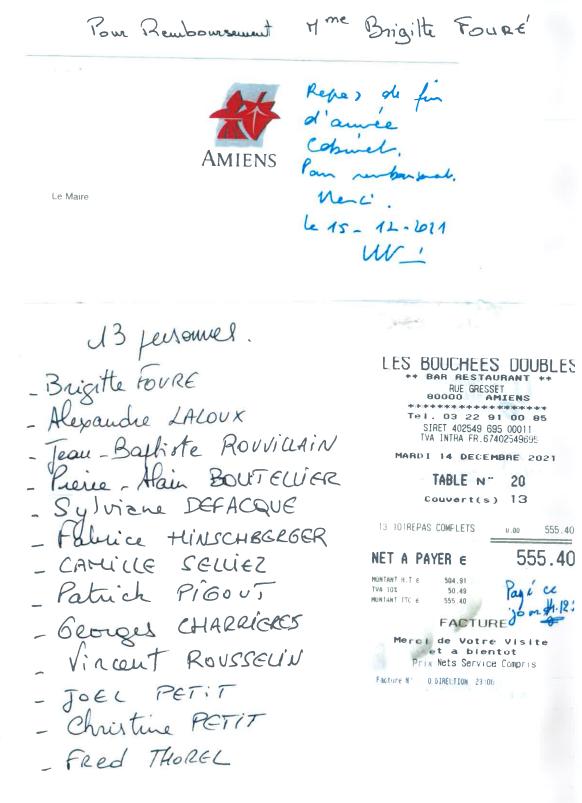 Pour Remboursement Mme Brigitte FOURÉ
Repas de fin
d'année
Cabinet.
Pour remboursement.
Merci.
le 15-12-2021
AMIENS
Le Maire
13 personnes.
- Brigitte FOURE
- Alexandre LALOUX
- Jean-Baptiste ROUVILLAIN
- Pierre-Alain BOUTELLIER
- Sylviane DEFACQUE
- Fabrice HINSCHBERGER
- CAMILLE SELLIEZ
- Patrick PIGOUT
- Georges CHARRIERES
- Vincent ROUSSELIN
- JOEL PETIT
- Christine PETIT
- Fred THOREL
LES BOUCHEES DOUBLES
** BAR RESTAURANT **
RUE GRESSET
80000 AMIENS
********************
Tel. 03 22 91 00 85
SIRET 402549 695 00011
TVA INTRA FR.67402549695
MARDI 14 DECEMBRE 2021
TABLE N° 20
Couvert(s) 13
13 REPAS COMPLETS 555.40
NET A PAYER € 555.40
MONTANT H.T € 504.91
TVA 10% 50.49
MONTANT TTC € 555.40
Payé ce
jour
FACTURE
Merci de Votre Visite
et a bientot
Prix Nets Service Compris
Facture N° DIRECTION